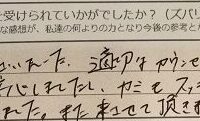 を受けられていかがでしたか?(ズバリ
な感想が、私達の何よりの力となり今後の参考とか
いた。適切なカウンセ
心しれたし、カミもスッ
れた。また来させて頂きま